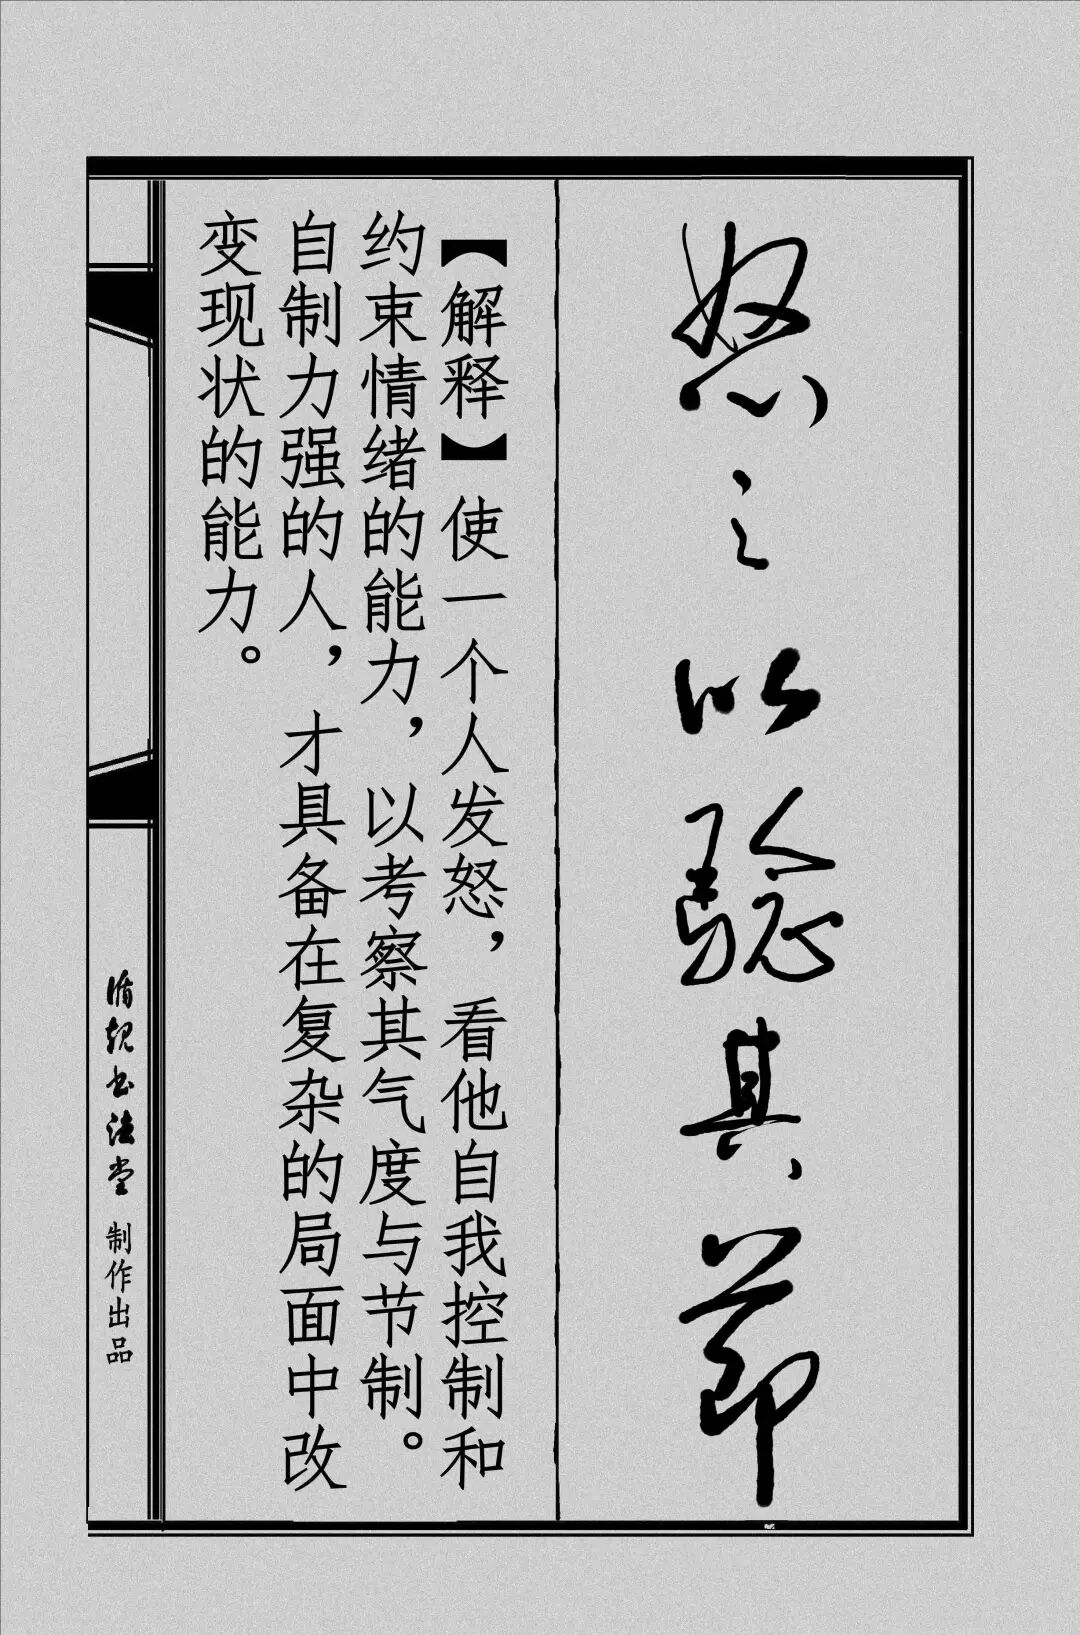 怒之以驗其節
【解释】使一个人发怒，看他自我控制和
约束情绪的能力，以考察其气度与节制。
自制力强的人，才具备在复杂的局面中改
变现状的能力。
循规书法堂 制作出品